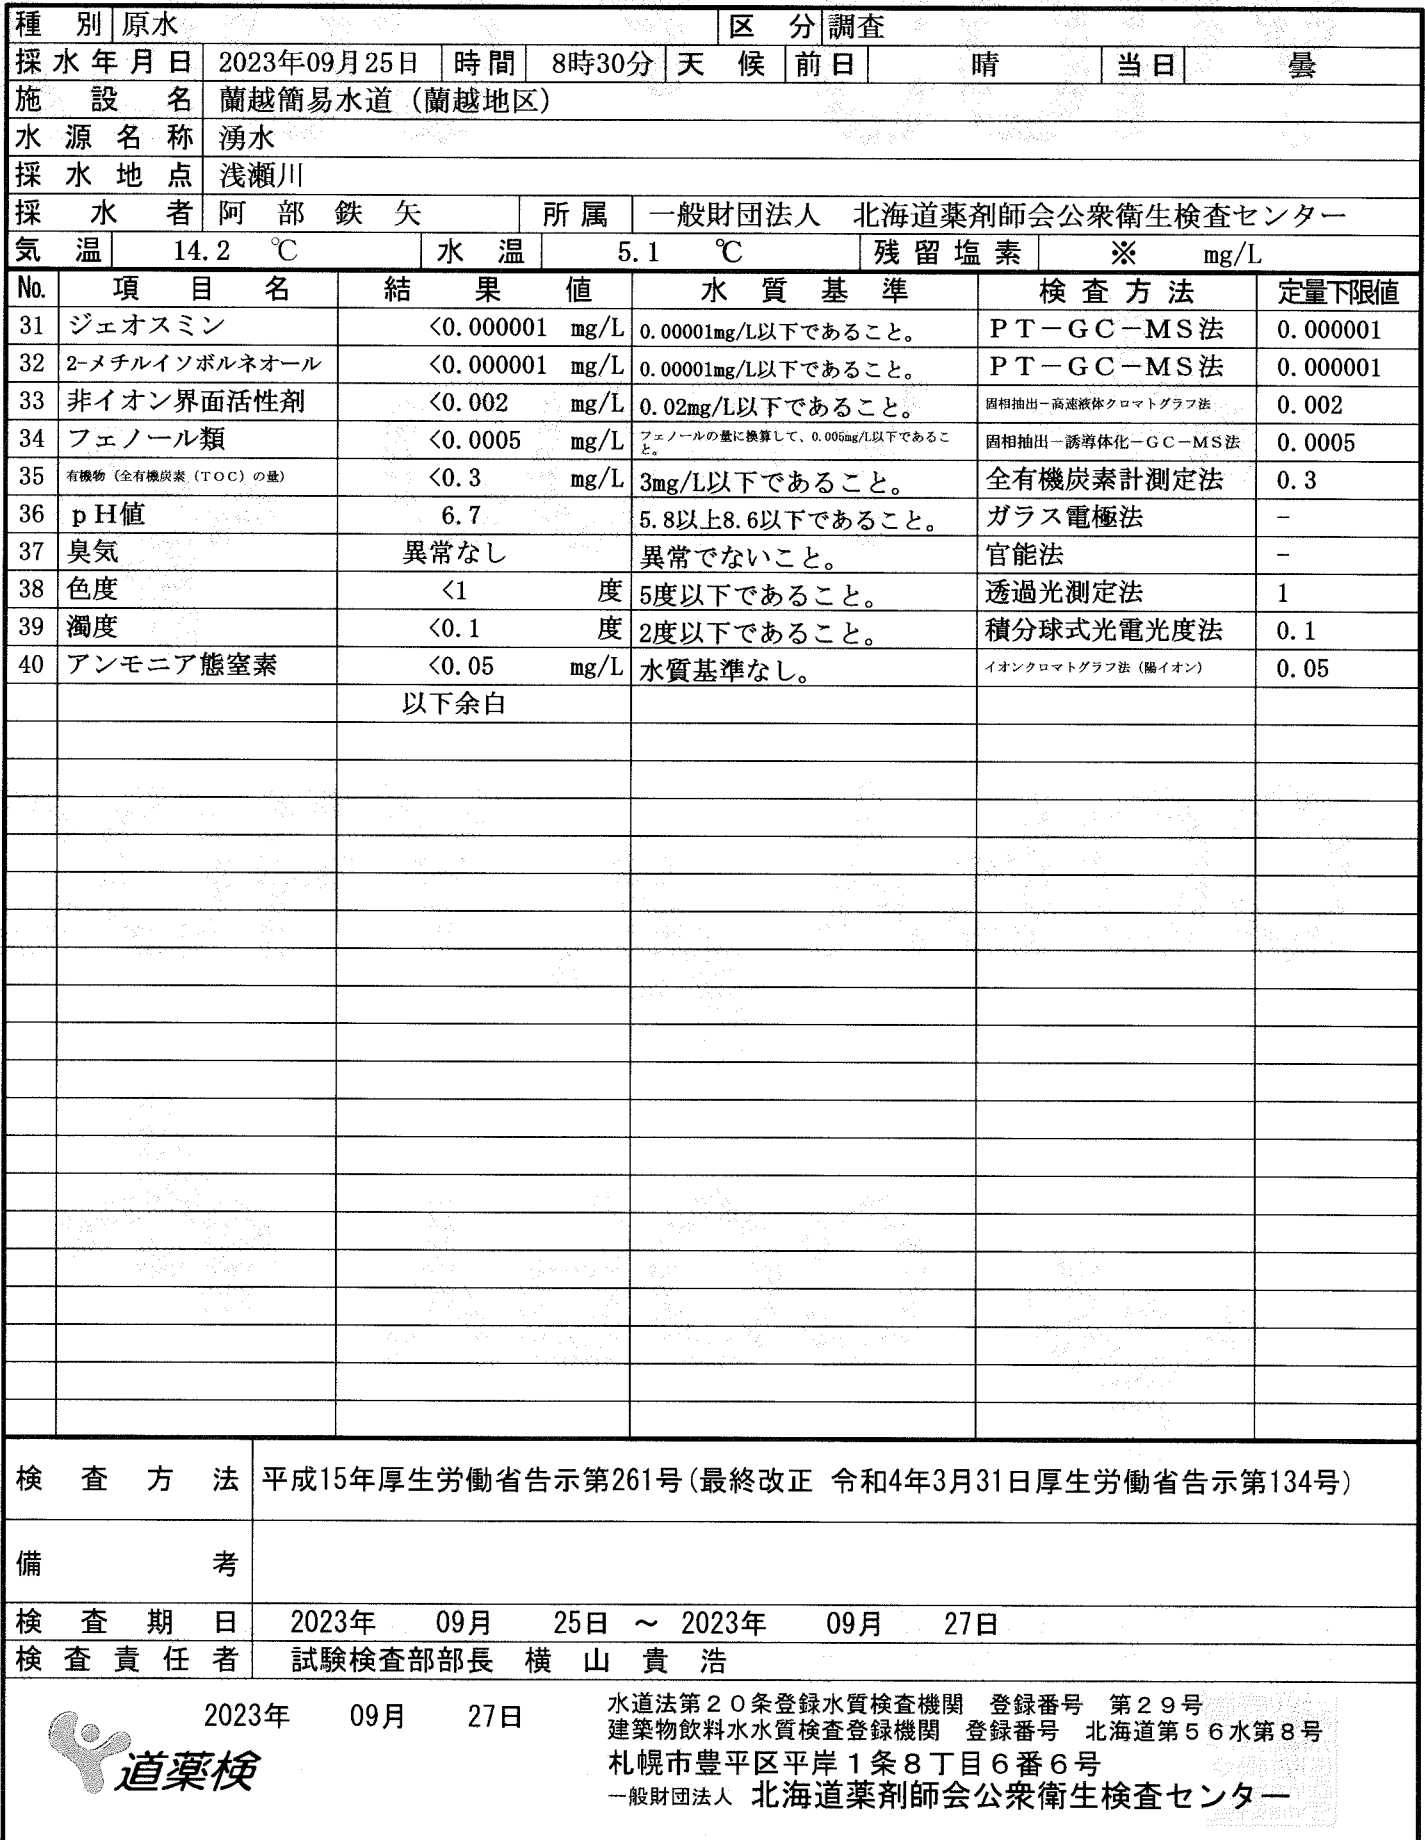 種別 原水 区分 調査
採水年月日 2023年09月25日 時間 8時30分 天候 前日 晴 当日 曇
施設名 蘭越簡易水道（蘭越地区）
水源名称 湧水
採水地点 浅瀬川
採水者 阿部 鉄矢 所属 一般財団法人 北海道薬剤師会公衆衛生検査センター
気温 14.2 ℃ 水温 5.1 ℃ 残留塩素 ※ mg/L
No. 項目名 結果値 水質基準 検査方法 定量下限値
31 ジェオスミン <0.000001 mg/L 0.00001mg/L以下であること。 ＰＴ－ＧＣ－ＭＳ法 0.000001
32 2-メチルイソボルネオール <0.000001 mg/L 0.00001mg/L以下であること。 ＰＴ－ＧＣ－ＭＳ法 0.000001
33 非イオン界面活性剤 <0.002 mg/L 0.02mg/L以下であること。 固相抽出－高速液体クロマトグラフ法 0.002
34 フェノール類 <0.0005 mg/L フェノールの量に換算して、0.005mg/L以下であること。 固相抽出－誘導体化－ＧＣ－ＭＳ法 0.0005
35 有機物（全有機炭素（ＴＯＣ）の量） <0.3 mg/L 3mg/L以下であること。 全有機炭素計測定法 0.3
36 ｐＨ値 6.7 5.8以上8.6以下であること。 ガラス電極法 －
37 臭気 異常なし 異常でないこと。 官能法 －
38 色度 <1 度 5度以下であること。 透過光測定法 1
39 濁度 <0.1 度 2度以下であること。 積分球式光電光度法 0.1
40 アンモニア態窒素 <0.05 mg/L 水質基準なし。 イオンクロマトグラフ法（陽イオン） 0.05
以下余白
検査方法 平成15年厚生労働省告示第261号(最終改正 令和4年3月31日厚生労働省告示第134号)
備考
検査期日 2023年 09月 25日 ～ 2023年 09月 27日
検査責任者 試験検査部部長 横山 貴浩
2023年 09月 27日
水道法第２０条登録水質検査機関 登録番号 第２９号
建築物飲料水水質検査登録機関 登録番号 北海道第５６水第８号
札幌市豊平区平岸１条８丁目６番６号
一般財団法人 北海道薬剤師会公衆衛生検査センター
道薬検